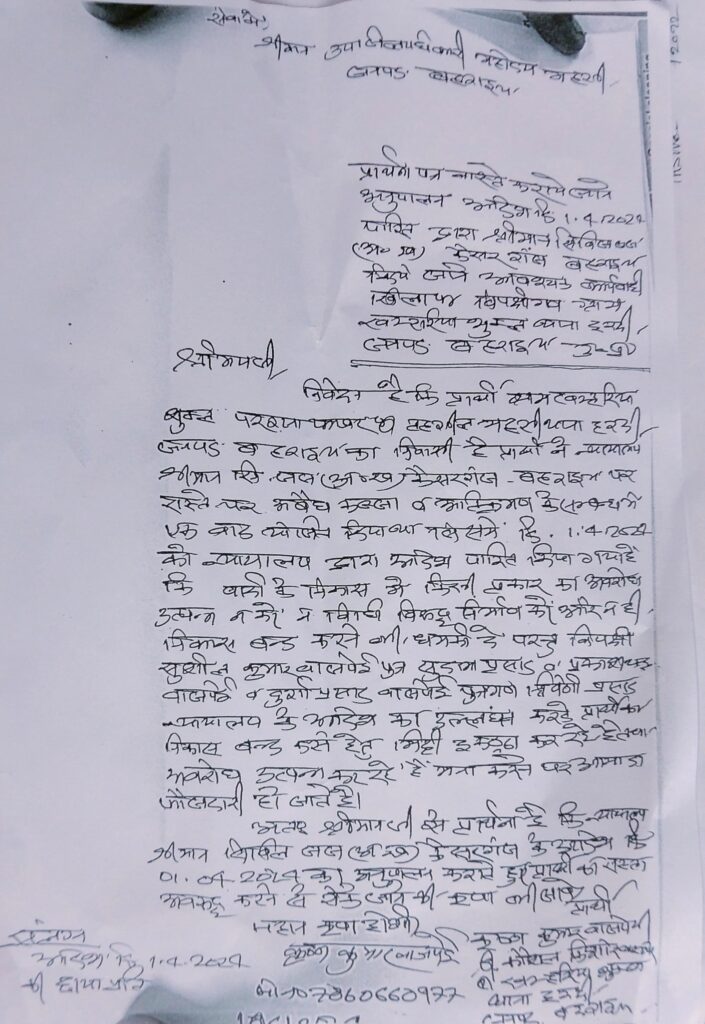 सेवा में,
श्रीमान उपजिलाधिकारी महोदय महसी
जनपद बहराइच
प्रार्थना पत्र वास्ते कराये जाने
अनुपालन आदेश दि. 1.4.2024
पारित द्वारा श्रीमान सिविल जज
(अ०ख०) कैसरगंज बहराइच
किये जाने आवश्यक कार्यवाही
खिलाफ विपक्षीगण ग्राम
खम्हरिया शुक्ल थाना हरदी
जनपद बहराइच
श्रीमान जी
निवेदन है कि प्रार्थी ग्राम खम्हरिया
शुक्ल परगना फखरपुर तहसील महसी थाना हरदी
जनपद बहराइच का निवासी है प्रार्थी ने न्यायालय
श्रीमान सि. जज (अ०ख०) कैसरगंज बहराइच पर
रास्ते पर अवैध कब्जा व अतिक्रमण के सम्बन्ध में
एक वाद योजित किया था जिसमें दि. 1.4.2024
को न्यायालय द्वारा आदेश पारित किया गया है
कि वादी के निकास में किसी प्रकार का अवरोध
उत्पन्न न करें न विधि विरुद्ध निर्माण करें और न ही
निकास बन्द करने की धमकी दें परन्तु विपक्षी
सुशील कुमार बाजपेई पुत्र प्रसाद व
बाजपेई व दुर्गा प्रसाद बाजपेई पुत्रगण त्रिवेणी प्रसाद
न्यायालय के आदेश का उल्लंघन करके प्रार्थी का
निकास बन्द करने हेतु मिट्टी इकट्ठा कर रहे हैं तथा
अवरोध उत्पन्न कर रहे हैं मना करने पर आमादा
फौजदारी हो जाते हैं।
अतः श्रीमान जी से प्रार्थना है कि न्यायालय
श्रीमान सिविल जज (अ०ख०) कैसरगंज के आदेश दि.
01.04.2024 का अनुपालन कराते हुए प्रार्थी का रास्ता
अवरुद्ध करने से रोके जाने की कृपा की जाए
महान कृपा होगी
प्रार्थी
संलग्न
आदेश दि. 1.4.2024
की छाया प्रति
कृष्ण कुमार बाजपेई
मो.नं० 7860660977
कृष्ण कुमार बाजपेयी
खम्हरिया शुक्ल
थाना हरदी
जनपद बहराइच